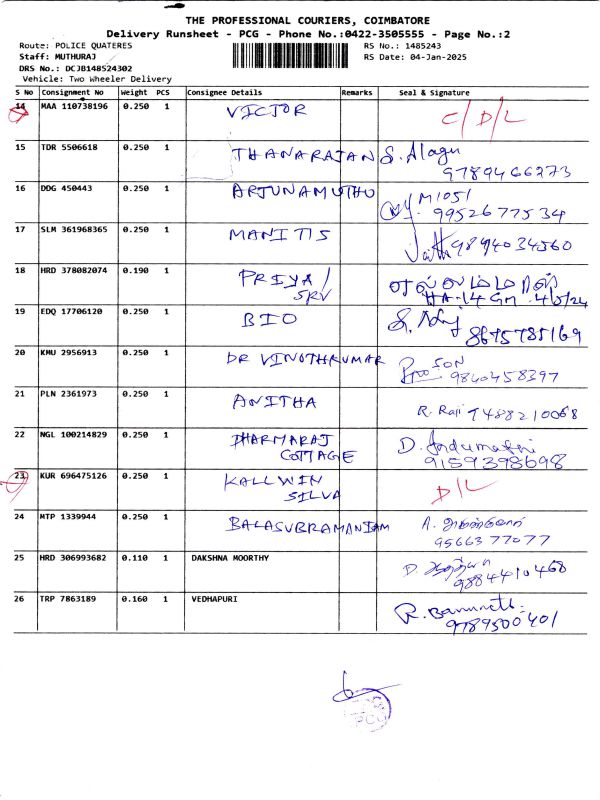 THE PROFESSIONAL COURIERS, COIMBATORE
Delivery Runsheet - PCG - Phone No.:0422-3505555 - Page No.:2
Route: POLICE QUATERES RS No.: 1485243
Staff: MUTHURAJ RS Date: 04-Jan-2025
DRS No.: DCJB148524302
Vehicle: Two Wheeler Delivery
S No Consignment No Weight PCS Consignee Details Remarks Seal & Signature
14 MAA 110738196 0.250 1 VICTOR C/D/L
15 TDR 5506618 0.250 1 THANARAJAN S. Alagu
9789466273
16 DDG 450443 0.250 1 ARJUNAMUTHU M1051
9952677534
17 SLM 361968365 0.250 1 MANITIS 9894034560
18 HRD 378082074 0.190 1 PRIYA/
SRV
19 EDQ 17706120 0.250 1 BIO 8695785169
20 KMU 2956913 0.250 1 DR VINOTHKUMAR SON
9840458397
21 PLN 2361973 0.250 1 ANITHA R. Raji 7488210068
22 NGL 100214829 0.250 1 DHARMARAJ
COTTAGE 9159398698
23 KUR 696475126 0.250 1 KALLWIN
SILVA D/L
24 MTP 1339944 0.250 1 BALASUBRAMANIAM A.
9566377077
25 HRD 306993682 0.110 1 DAKSHNA MOORTHY D.
9884410468
26 TRP 7863189 0.160 1 VEDHAPURI R.
9789500401
PCG